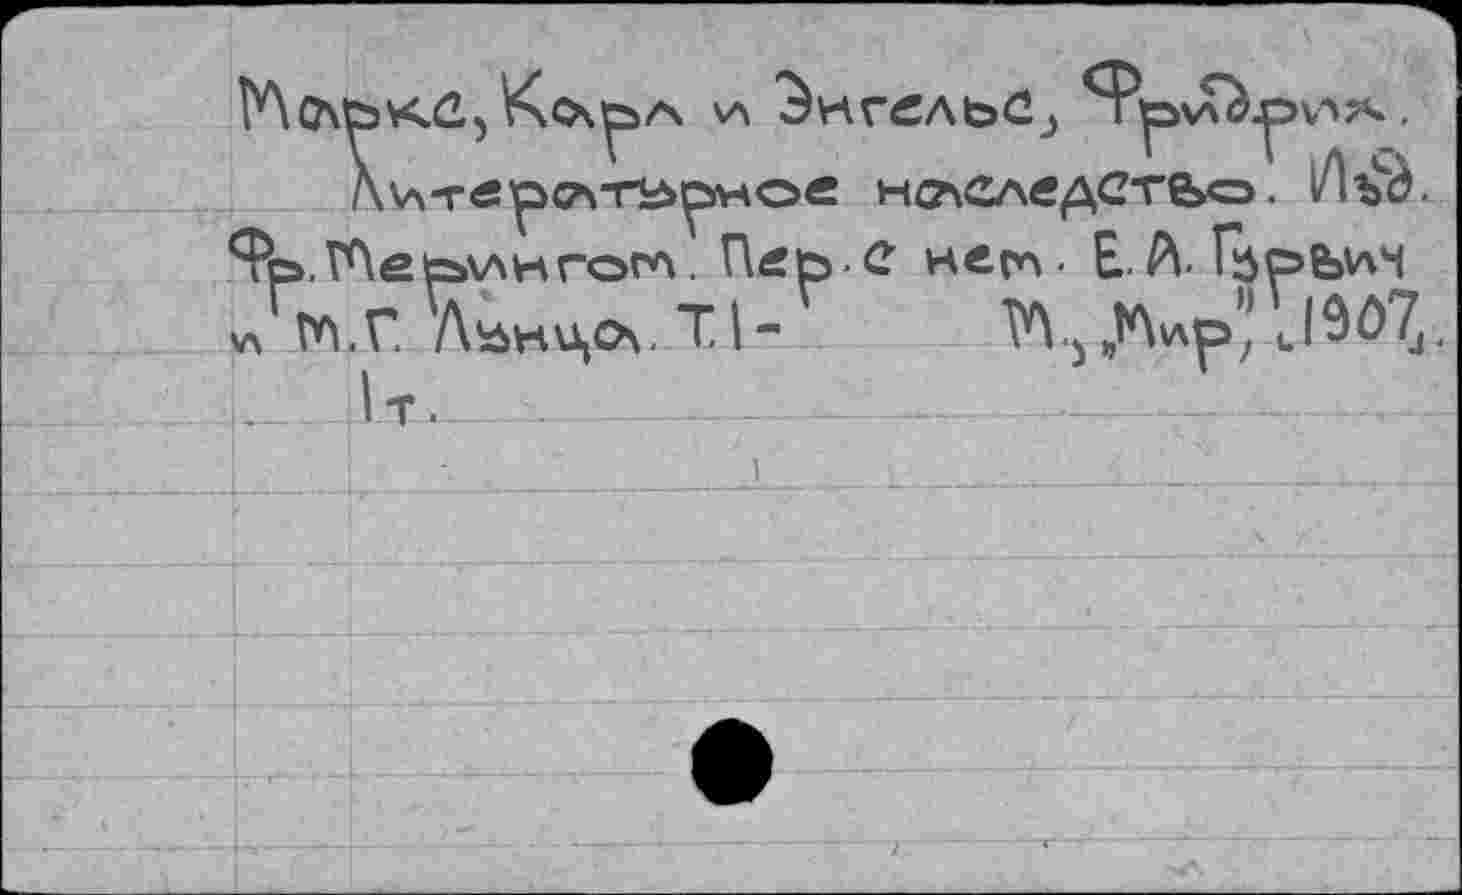 Маркс, Карл и Энгельс, Фридрих.
Литературное наследство. Изд.
Фр. Мерингом. Пер. с нем. Е. А. Гурвич
и М. Г. Лунца. Т. 1 - М., „Мир”, [1907].
1 т.